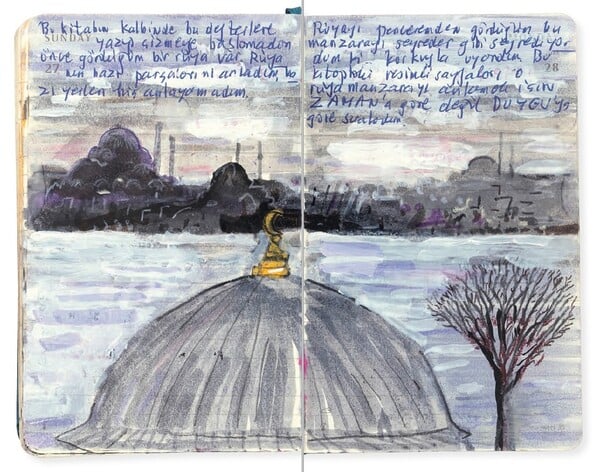 Bu kitabın kalbinde bu defterlere
SUNDAY
yazıp çizmeye başlamadan
önce gördüğüm bir rüya var. Rüya
27
nın bazı parçalarını anladım, ba
zı yerleri hiç anlayamadım.
Rüyayı penceremden gördüğüm bu
manzarayı seyreder gibi seyrediyor
dum ki korkuyla uyandım. Bu
kitaptaki resimli sayfaları o
28
rüya manzarayı anlamak için
ZAMANa göre değil DUYGUya
göre sıraladım.